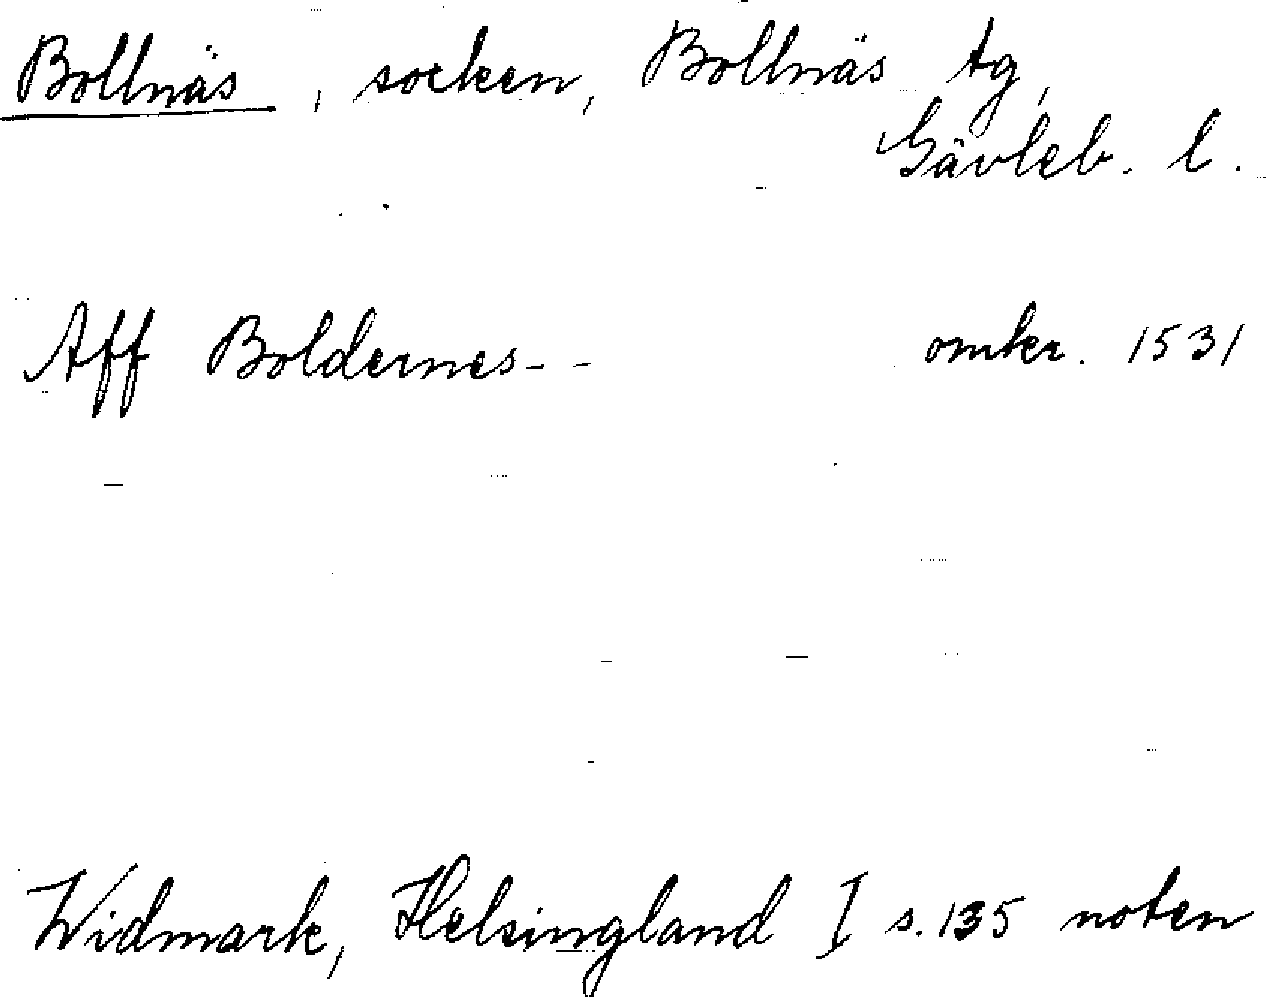 Bollnäs, socken, Bollnäs tg,
Gävleb. l.
Aff Boldernes - -   omkr. 1531
Widmark, Helsingland I s. 135 noten